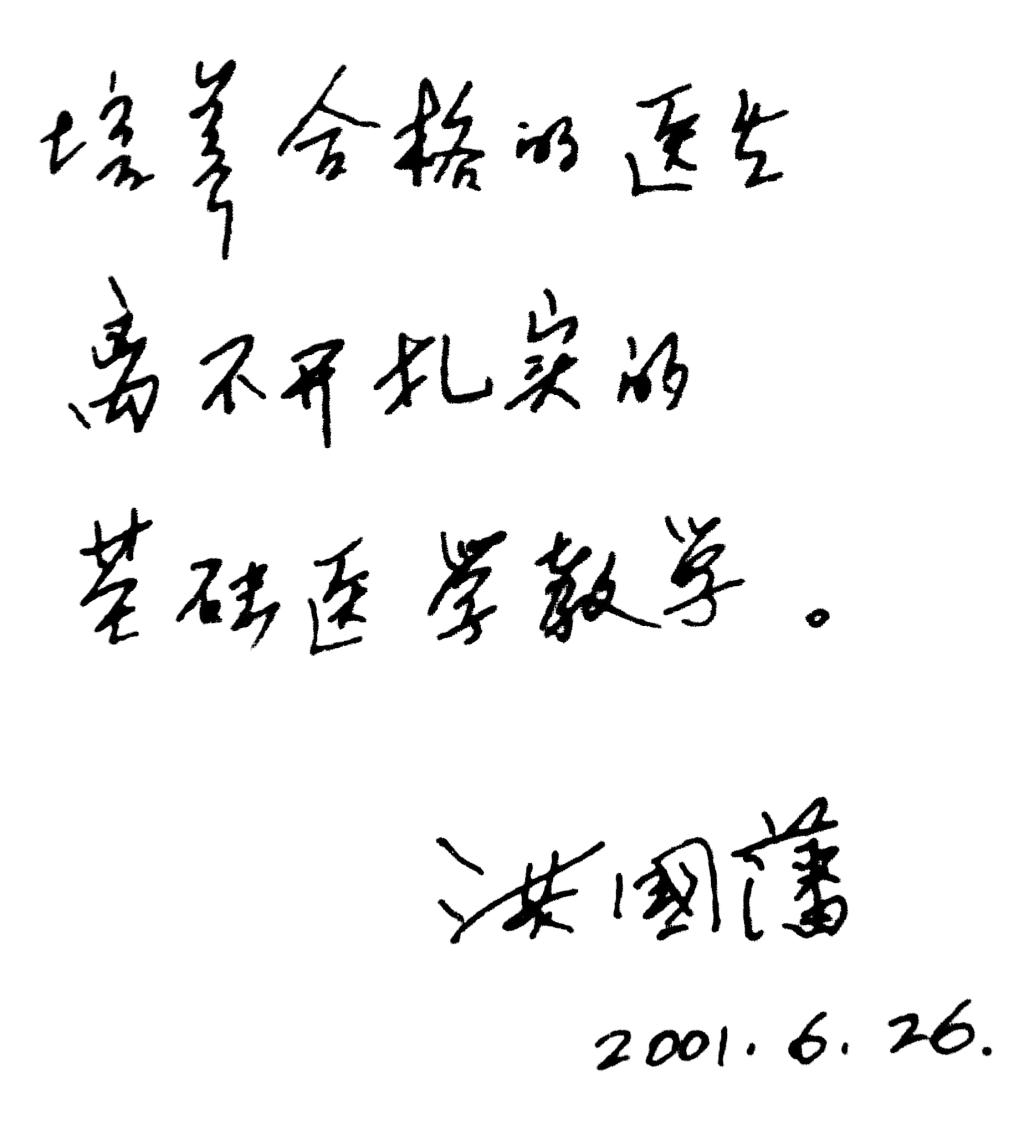 培养合格的医生
离不开扎实的
基础医学教学。
洪國藩
2001.6.26.